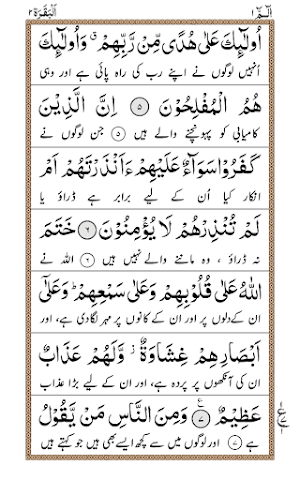 الٓمّٓ ۱ الْبَقَرَة ۲
اُولٰٓئِكَ عَلٰى هُدًى مِّنْ رَّبِّهِمْ ۗ وَاُولٰٓئِكَ
اُنہیں لوگوں نے اپنے رب کی راہ پائی ہے اور وہی
هُمُ الْمُفْلِحُوْنَ ۝۵ اِنَّ الَّذِيْنَ
کامیابی کو پہونچنے والے ہیں ۝۵ جن لوگوں نے
كَفَرُوْا سَوَآءٌ عَلَيْهِمْ ءَاَنْذَرْتَهُمْ اَمْ
انکار کیا اُن کے لیے برابر ہے ڈراؤ یا
لَمْ تُنْذِرْهُمْ لَا يُؤْمِنُوْنَ ۝۶ خَتَمَ
نہ ڈراؤ ، وہ ماننے والے نہیں ہیں ۝۶ اللہ نے
اللّٰهُ عَلٰى قُلُوْبِهِمْ وَعَلٰى سَمْعِهِمْ ۭ وَعَلٰٓى
ان کے دلوں پر اور ان کے کانوں پر مہر لگادی ہے، اور
اَبْصَارِهِمْ غِشَاوَةٌ ۡ وَّلَهُمْ عَذَابٌ
ان کی آنکھوں پر پردہ ہے، اور ان کے لیے بڑا عذاب
عَظِيْمٌ ۝۷ وَمِنَ النَّاسِ مَنْ يَّقُوْلُ
ہے ۝۷ اور لوگوں میں سے کچھ ایسے بھی ہیں جو کہتے ہیں